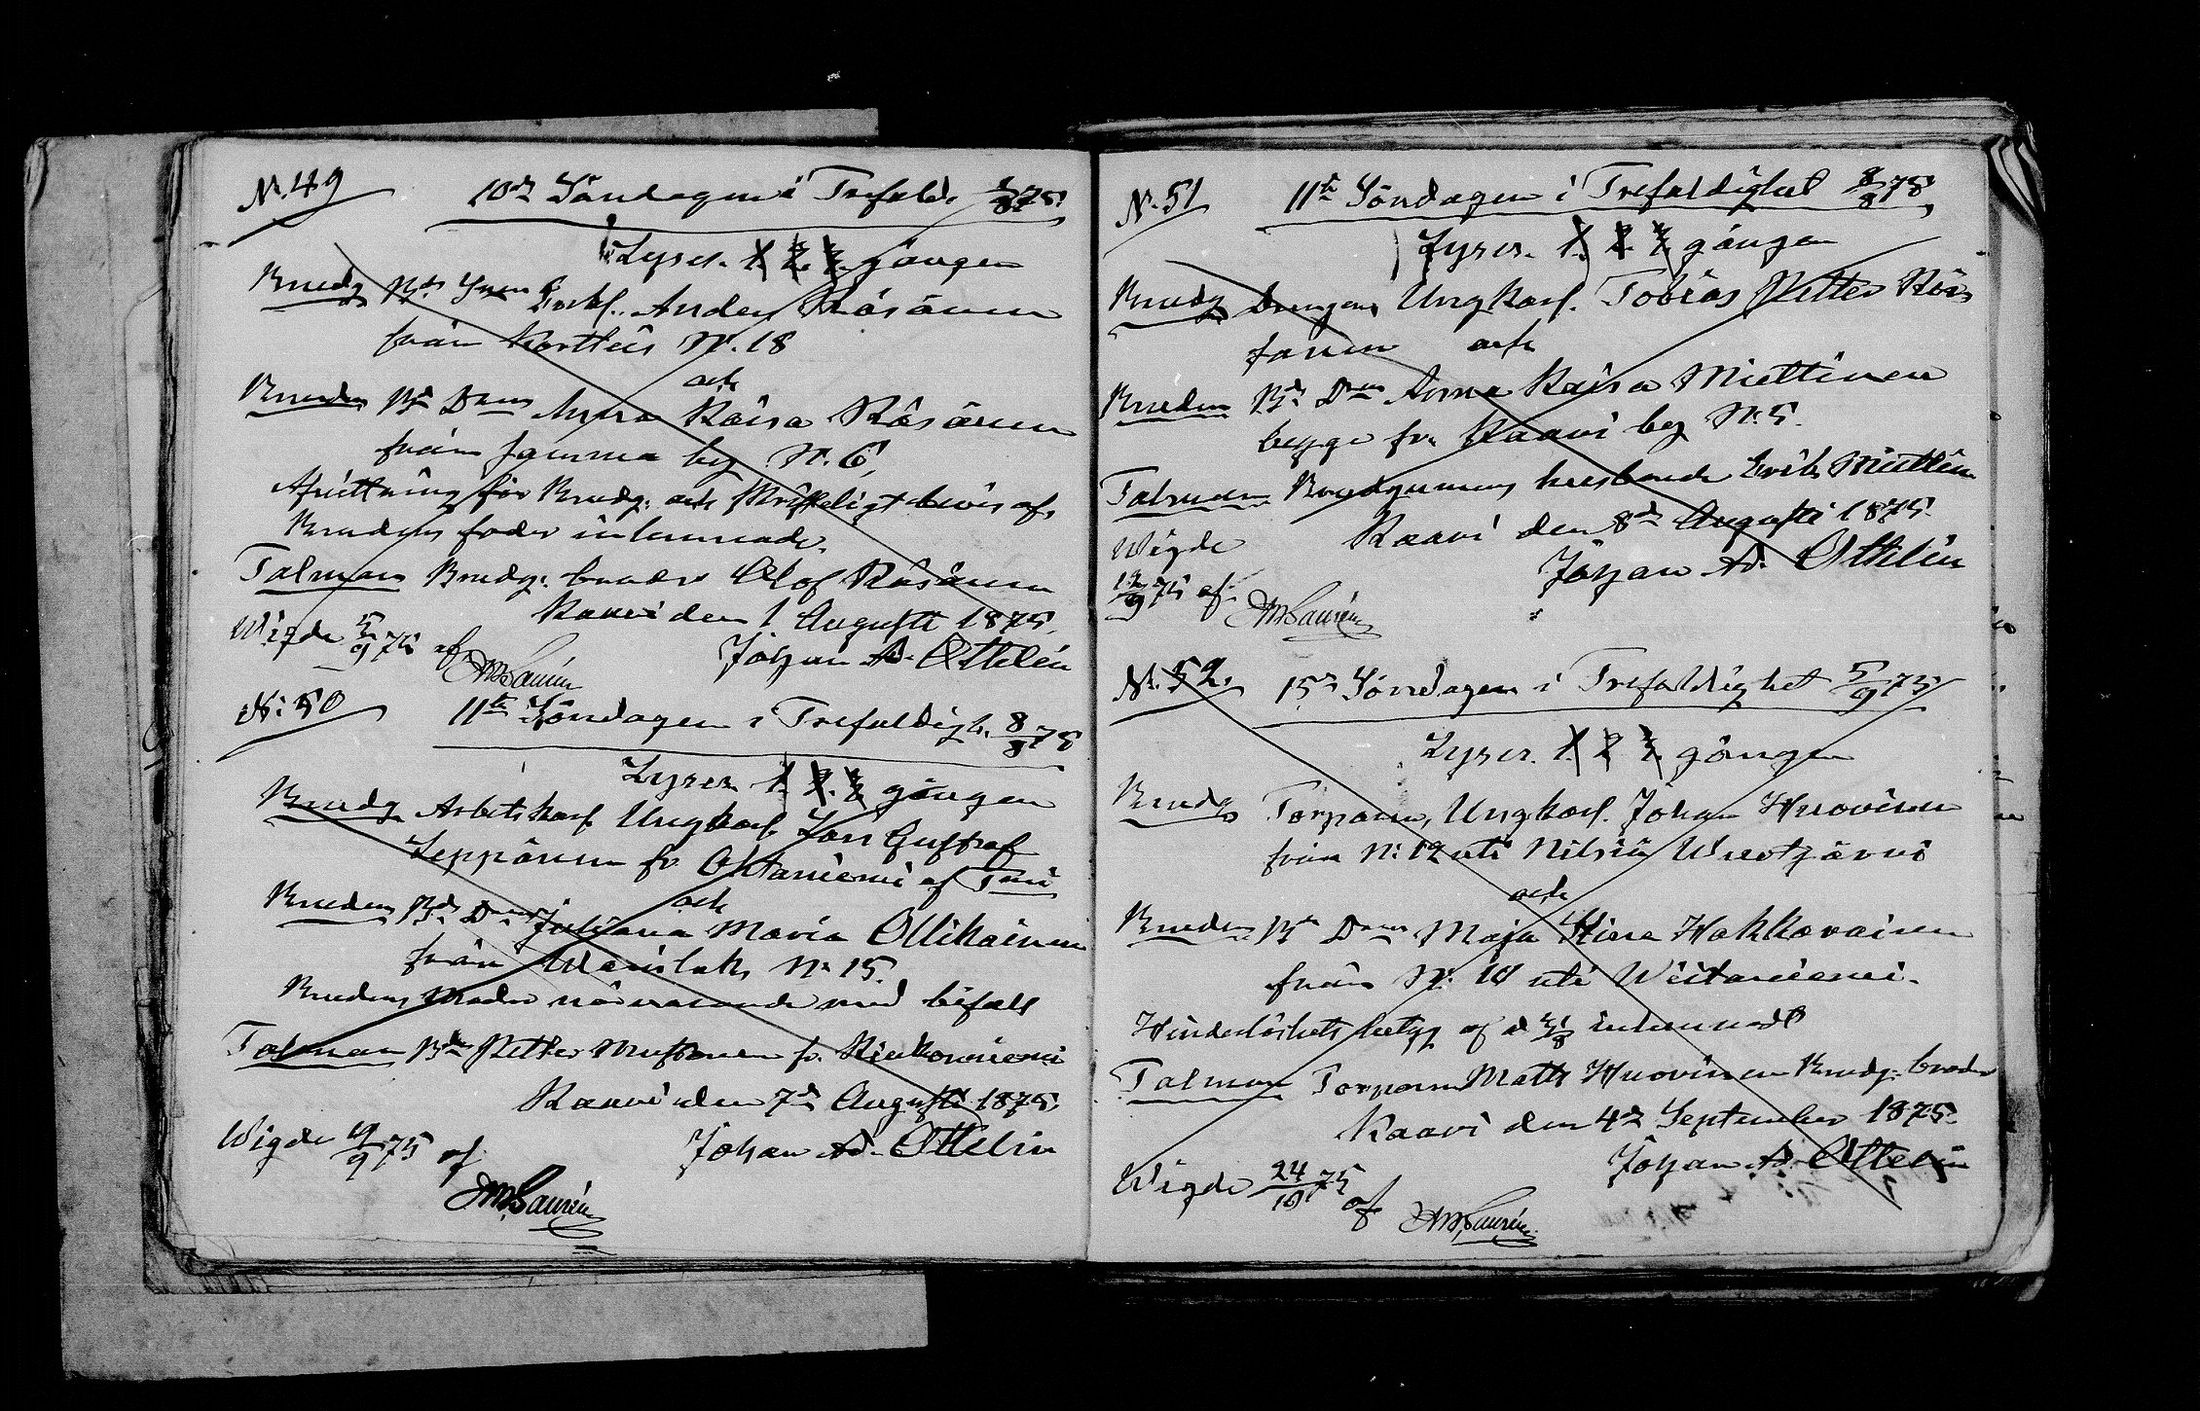 N. 49 10de Söndagen i Trefald. 1/8 75.
Lyses. 1. 2. 3. gången
Brudg Bds Son Enkl. Anders Räsänen
från Kortteis N. 18
och
Bruden Bd Dotter Anna Kaisa Räsänen
från Jamma by N. 6,
Afvittring för Brudg. och skriftligt bevis af
Brudens fader inlemnade.
Talman Brudg. broder Olof Räsänen
Kaavi den 1 Augusti 1875.
Wigde 5/9 75 af Johan Ad. Ottelin
N: 50 11te Söndagen i Trefaldigh. 8/8 75
Lyses 1. 2. 3. gången
Brudg Arbetskarl Ungkarl Lars Gustaf
Leppänen fr. Ohtaniemi af
och
Bruden Bds Juliana Maria Ollikainen
från N. 15.
Brudens Moder närvarande med bifall
Talman Bde Petter fr.
Kaavi den 7de Augusti 1875.
Wigde 75 af Johan Ad. Ottelin
N. 51 11te Söndagen i Trefaldighet 8/8 75
Lyses. 1. 2. 3. gången
Brudg Drengen Ungkarl. Tobias Petter
och
Bruden Bds Anna Kaisa Miettinen
begge fr. Kaavi by N. 5.
Talman Brudgummens husbonde Erik Miettinen
Kaavi den 8de Augusti 1875.
Wigde Johan Ad. Ottelin
12/9 75 af
N. 52. 15de Söndagen i Trefaldighet 5/9 75
Lyses. 1. 2 3. gången
Brudg Torparen, Ungkarl. Johan Huovinen
från N: 12 uti Nilsiä Wuotjärvi
och
Bruden Bds Maja Stina Hakkarainen
från N: 10 uti Weitaniemi.
Hinderlöshets betyg af d inlemnadt
Talman Torparen Matts Huovinen Brudg. broder
Kaavi den 4de September 1875.
Johan Ad. Ottelin
Wigde 24/10 75 af